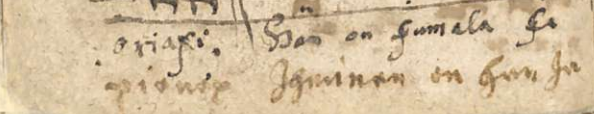 oriaxi. Hän on Jumala ja
pienex Ihminen on han Ja